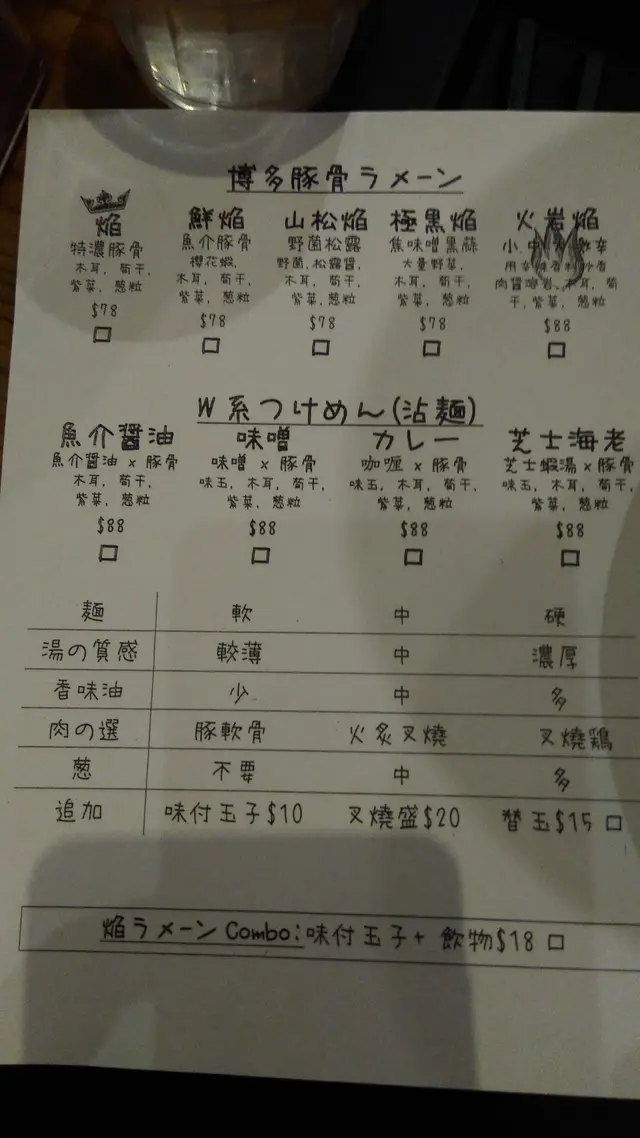 博多豚骨ラメーン
焔 鮮焔 山松焔 極黒焔 火岩焔
特濃豚骨 魚介豚骨 野菌松露 焦味噌黒蒜 小 中
木耳, 荀干, 櫻花蝦, 野菌,松露醬, 大量野菜,
紫菜, 葱粒 木耳, 荀干, 木耳, 荀干, 木耳, 荀干,
紫菜, 葱粒 紫菜,葱粒 紫菜, 葱粒 干,紫菜, 葱粒
$78 $78 $78 $78 $88
W系つけめん(沾麵)
魚介醤油 味噌 カレー 芝士海老
魚介醤油 x 豚骨 味噌 x 豚骨 咖喱 x 豚骨 芝士蝦湯 x 豚骨
木耳, 荀干, 味玉, 木耳, 荀干, 味玉, 木耳, 荀干, 味玉, 木耳, 荀干,
紫菜, 葱粒 紫菜, 葱粒 紫菜, 葱粒 紫菜, 葱粒
$88 $88 $88 $88
麵 軟 中 硬
湯の質感 較薄 中 濃厚
香味油 少 中 多
肉の選 豚軟骨 火炙叉燒 叉燒鶏
葱 不要 中 多
追加 味付玉子$10 叉燒盛$20 替玉$15
焔ラメーン Combo:味付玉子+ 飲物$18